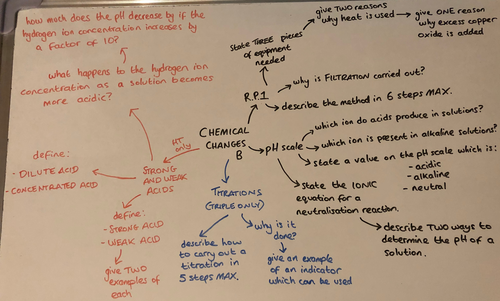 how much does the pH decrease by if the
hydrogen ion concentration increases by
a factor of 10?
what happens to the hydrogen ion
concentration as a solution becomes
more acidic?
define:
- DILUTE ACID
- CONCENTRATED ACID
HT
only
STRONG
AND WEAK
ACIDS
define:
- STRONG ACID
- WEAK ACID
give TWO
examples of
each
CHEMICAL
CHANGES
B
R.P.1
state THREE pieces
of equipment
needed
give TWO reasons
why heat is used
give ONE reason
why excess copper
oxide is added
why is FILTRATION carried out?
describe the method in 6 steps MAX.
pH scale
which ion do acids produce in solutions?
which ion is present in alkaline solutions?
state a value on the pH scale which is:
- acidic
- alkaline
- neutral
state the IONIC
equation for a
neutralisation reaction.
describe TWO ways to
determine the pH of a
solution.
TITRATIONS
(TRIPLE ONLY)
describe how
to carry out a
titration in
5 steps MAX.
why is it
done?
give an example
of an indicator
which can be used